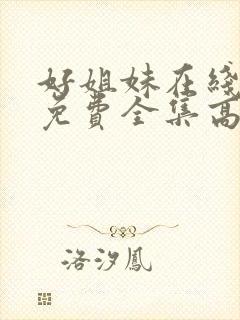 好姐妹在綫
免費全集高
洛汐鳳